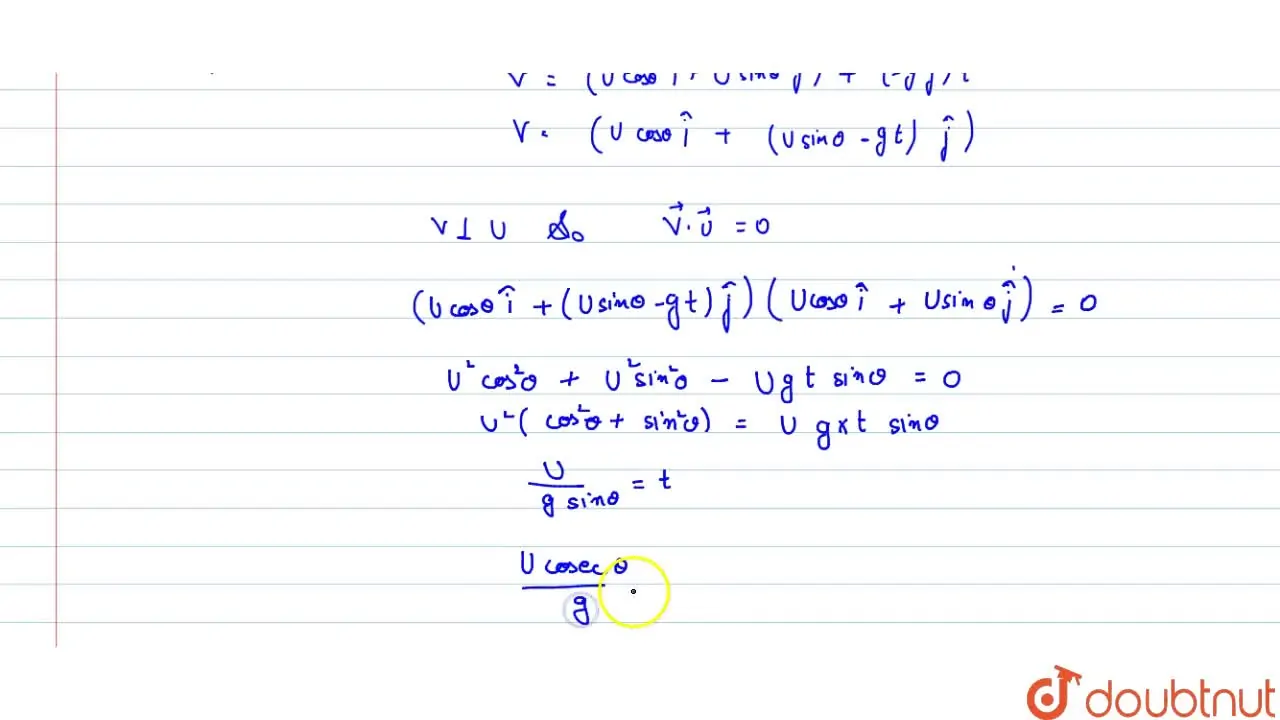 V = (U cosθ î + U sinθ ĵ) + (-gĵ)t
V = (U cosθ î + (U sinθ - gt) ĵ)
V ⊥ U So V⃗ . U⃗ = 0
(U cosθ î + (U sinθ - gt) ĵ) (U cosθ î + U sinθ ĵ) = 0
U² cos²θ + U² sin²θ - U g t sinθ = 0
U² ( cos²θ + sin²θ) = U g x t sinθ
U / g sinθ = t
U cosec θ / g
doubtnut